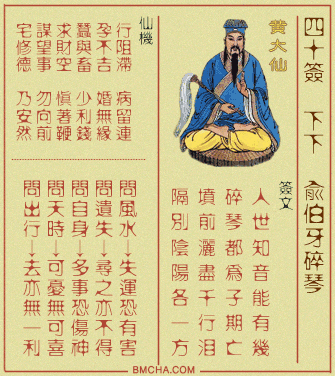 四十簽 下下 俞伯牙碎琴
黃大仙
簽文
人世知音能有幾
碎琴都為子期亡
墳前灑盡千行泪
隔別陰陽各一方
仙機
行阻滯 病留連
孕不吉 婚無緣
蠶與畜 少利錢
求財空 慎著鞭
謀望事 勿向前
宅修德 乃安然
問風水→失運恐有害
問遺失→尋之亦不得
問自身→多事恐傷神
問天時→可憂無可喜
問出行→去亦無一利
BMCHA.COM